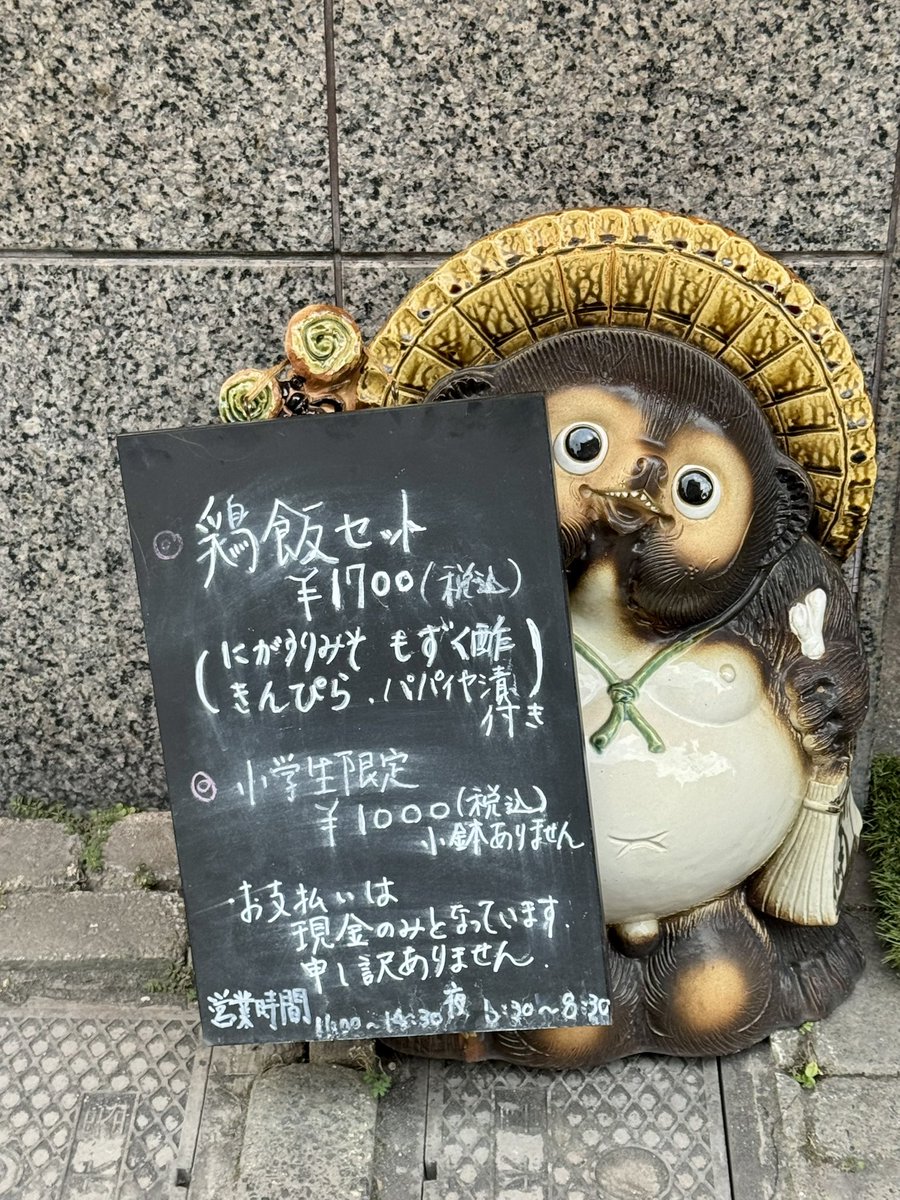 ◎ 鶏飯セット
¥1700(税込)
(にがうりみそ もずく酢
きんぴら、パパイヤ漬)
付き
◎ 小学生限定
¥1000(税込)
小鉢ありません
・お支払いは
現金のみとなっています.
申し訳ありません.
営業時間 11:00〜14:30 夜 6:30〜8:30